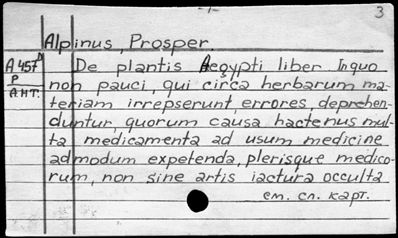 -1-
3
Alpinus, Prosper.
A 457 D De plantis Aegypti liber Inquo
P non pauci, qui circa herbarum ma-
АНТ. teriam irrepserunt, errores, deprehen-
duntur, quorum causa hactenus mul-
ta medicamenta ad usum medicine
admodum expetenda, plerisque medico-
rum, non sine artis iactura occulta
см. сл. карт.